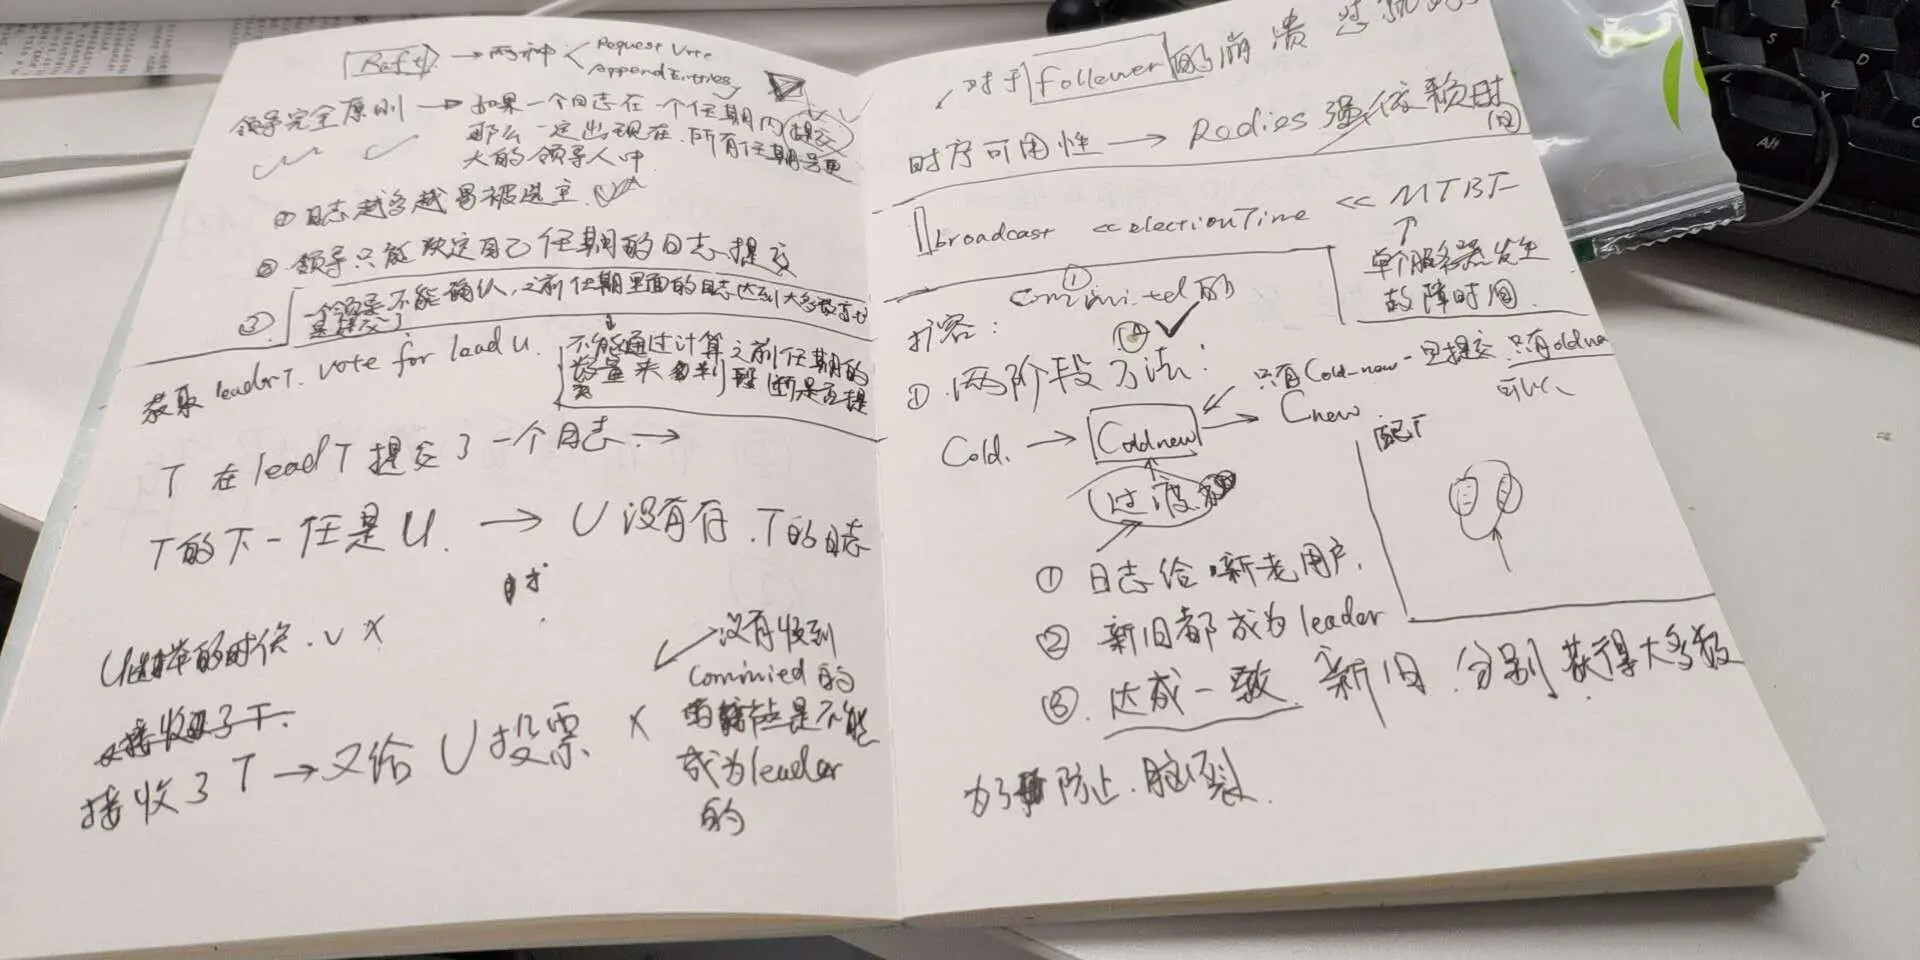 Raft → 两种 < Request Vote
AppendEntries
领导完全原则 → 如果一个日志在一个任期内提交
那么一定出现在所有任期号更
大的领导人中
① 日志越多越易被选主
② 领导只能决定自己任期的日志提交
③ 一个领导不能确认,之前任期里面的日志达到大多数
是提交了
不能通过计算之前任期的
数量来判断是否提
获取 leaderT. vote for lead U.
T 在 lead T 提交了一个日志 →
T的下一任是U. → U 没有存.T的日志
时
U选举的时候. U X
接收了 T.
接收了 T → 又给 U 投票 X
没有收到
Commied 的
是不能
成为leader
的
对于 Follewer 的崩溃
时序可用性 → Redies 强依赖时
间
broadcast << electionTime << MTBF
↑
单个服务器发生
故障时间
①
Commited 的
扩容:
① 两阶段方法:
只有Cold-new 一旦提交,只有oldne
可以
Cold. → Coldnew → Cnew
过渡
配了
① 日志给新老用户.
② 新旧都成为leader
③. 达成一致. 新旧.分别获得大多数
为了防止.脑裂.